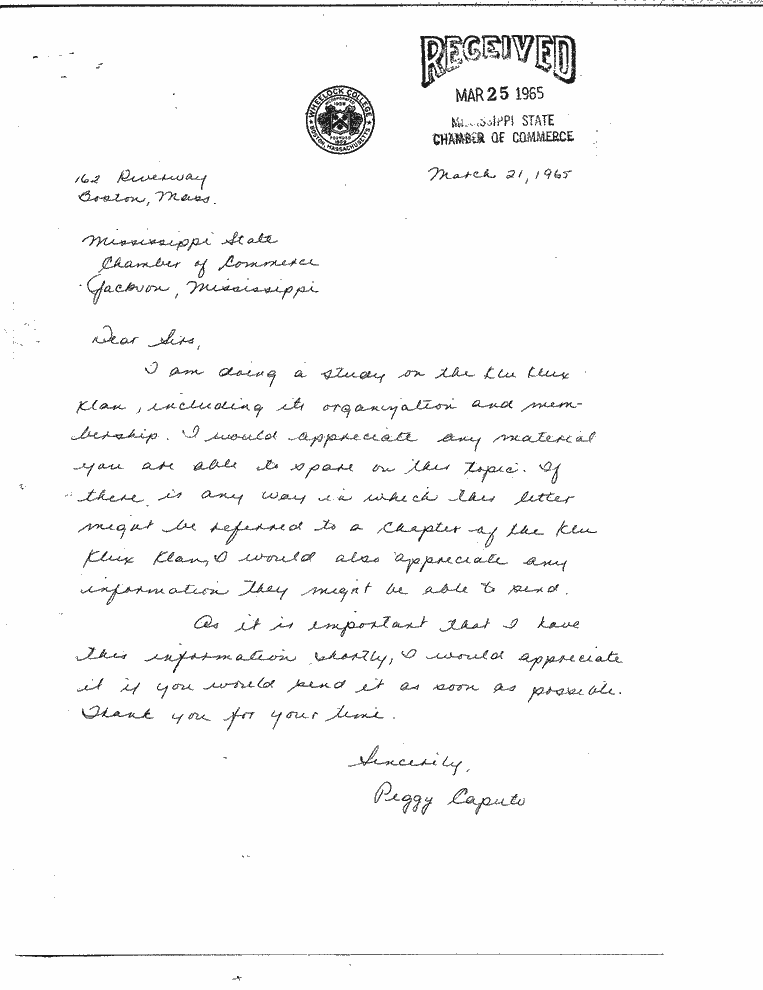 RECEIVED
MAR 25 1965
MISSISSIPPI STATE
CHAMBER OF COMMERCE
WHEELOCK COLLEGE
BOSTON, MASSACHUSETTS
March 21, 1965
162 Riverway
Boston, Mass.
Mississippi State
Chamber of Commerce
Jackson, Mississippi
Dear Sirs,
I am doing a study on the Klu Klux
Klan, including its organization and mem-
bership. I would appreciate any material
you are able to spare on this topic. If
there is any way in which this letter
might be referred to a chapter of the Klu
Klux Klan, I would also appreciate any
information they might be able to send.
As it is important that I have
this information shortly, I would appreciate
it if you would send it as soon as possible.
Thank you for your time.
Sincerely,
Peggy Caputo